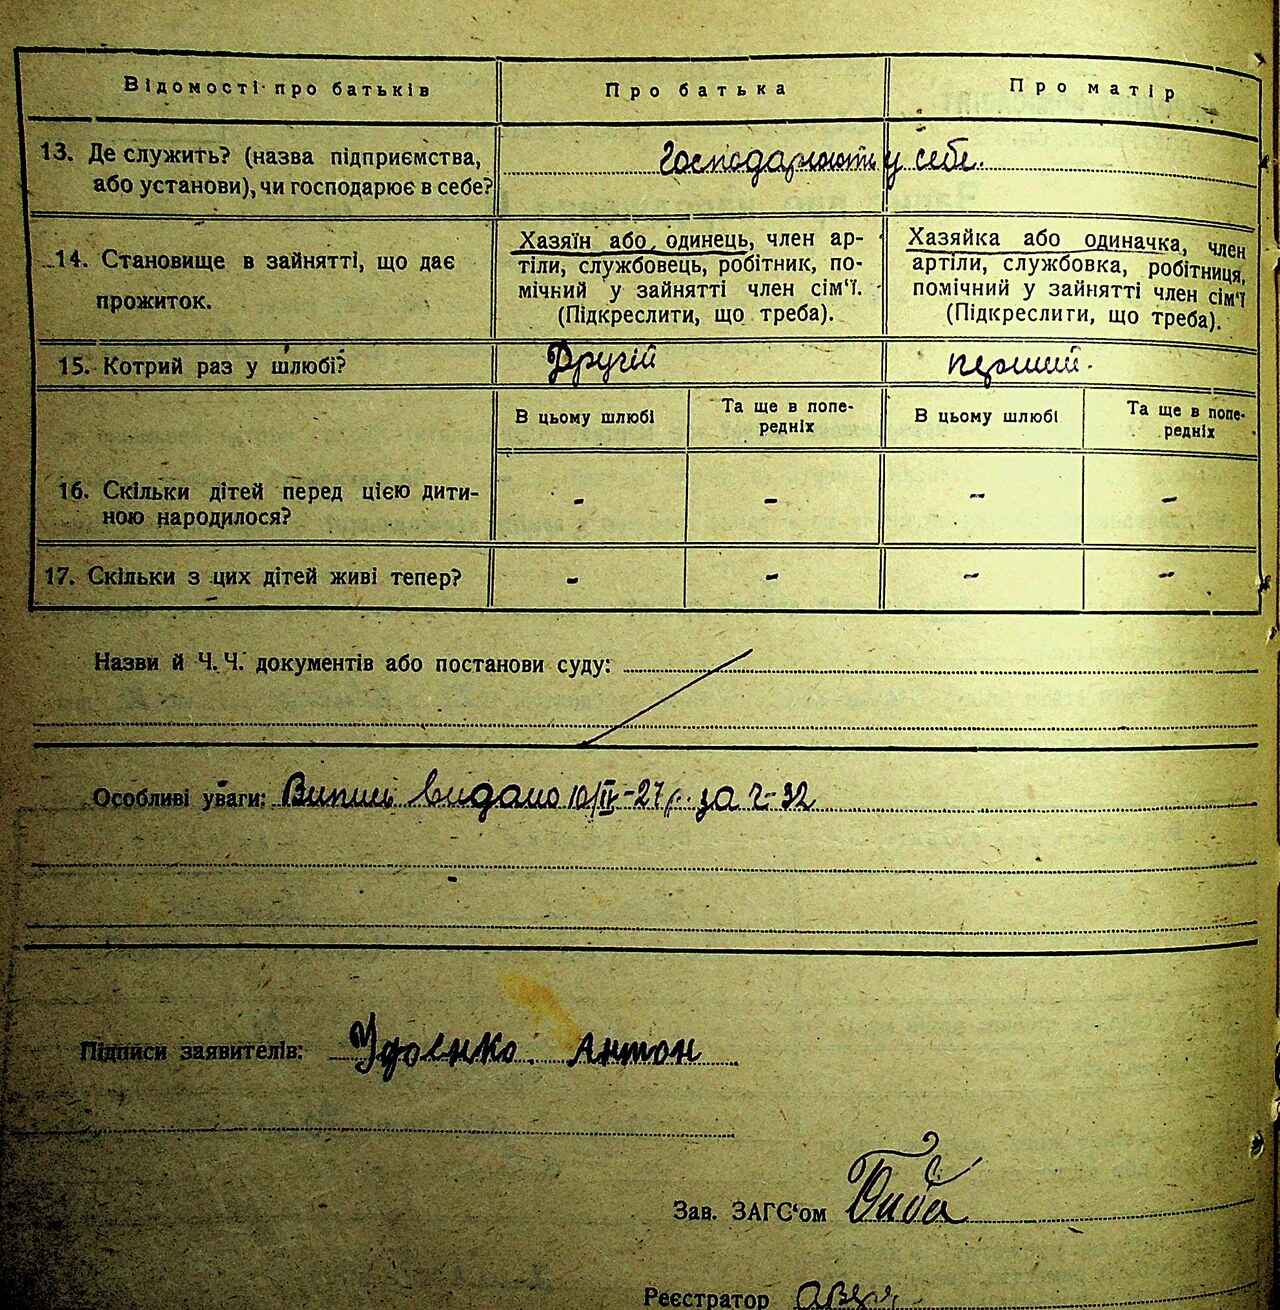 Відомості про батьків Про батька Про матір
13. Де служить? (назва підприємства, Господарюють у себе.
або установи), чи господарює в себе?
Хазяїн або одинець, член ар- Хазяйка або одиначка, член
14. Становище в зайнятті, що дає тіли, службовець, робітник, по- артіли, службовка, робітниця,
прожиток. мічний у зайнятті член сім'ї. помічний у зайнятті член сім'ї
(Підкреслити, що треба). (Підкреслити, що треба).
15. Котрий раз у шлюбі? Другій перший.
В цьому шлюбі Та ще в попе- В цьому шлюбі Та ще в попе-
редніх редніх
16. Скільки дітей перед цією дити- - - - -
ною народилося?
17. Скільки з цих дітей живі тепер? - - - -
Назви й Ч. Ч. документів або постанови суду:
Особливі уваги: Випис видано 10/IV-27р. за ч-32
Підписи заявителів: Удоенко Антон
Зав. ЗАГС'ом
Реєстратор